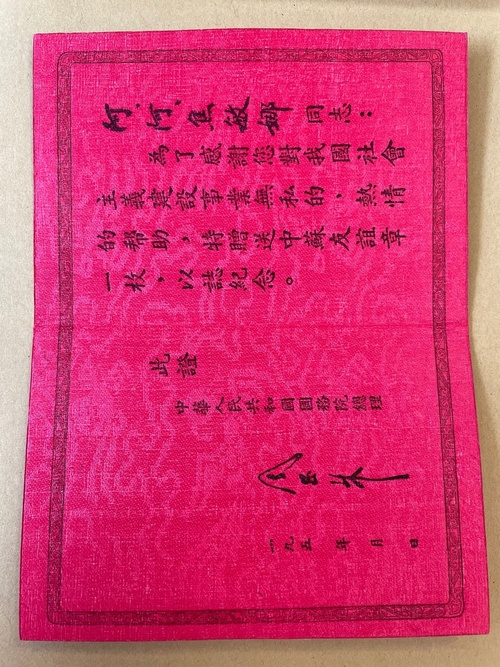 阿·阿·焦敏娜同志:
為了感謝您對我國社會
主義建設事業無私的,熱情
的幫助,特贈送中蘇友誼章
一枚,以誌紀念。
此證
中華人民共和國國務院總理
周恩来
一九五 年 月 日